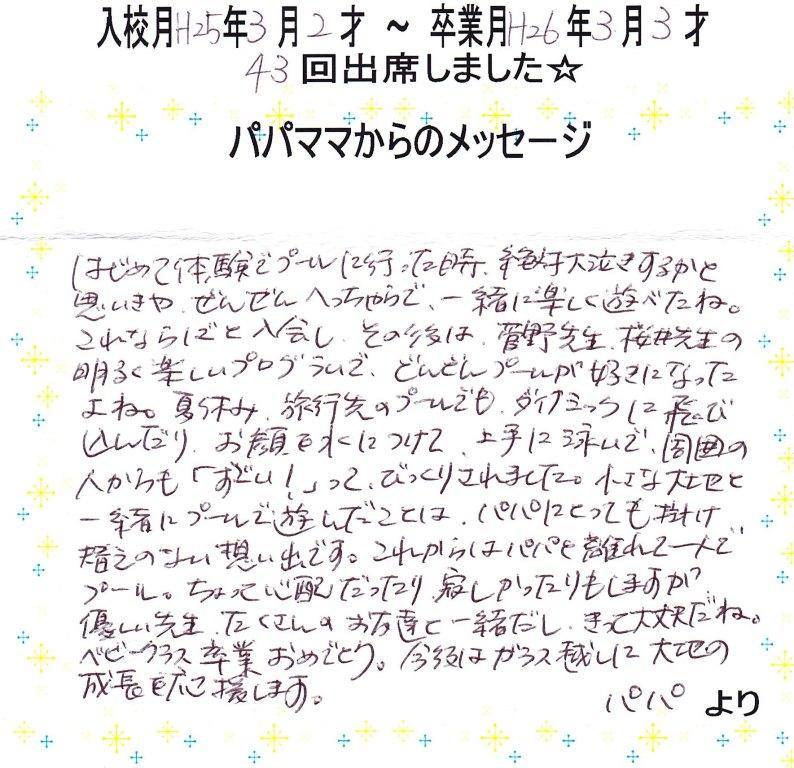 入校月H25年3月2才 ～ 卒業月H26年3月3才
43回出席しました☆
パパママからのメッセージ
はじめて体験でプールに行った時、絶対大泣きするかと
思いきや、ぜんぜんへっちゃらで、一緒に楽しく遊べたね。
これならばと入会し、その後は、菅野先生、桜井先生の
明るく楽しいプログラムで、どんどんプールが好きになった
よね。夏休み、旅行先のプールでも、ダイナミックに飛び
込んだり、お顔を水につけて、上手に泳いで、周囲の
人からも「すごい！」って、びっくりされました。小さな大地と
一緒にプールで遊んだことは、パパにとっても掛け
替えのない想い出です。これからはパパと離れて一人で
プール。ちょっと心配だったり、寂しかったりもしますが、
優しい先生、たくさんのお友達と一緒だし、きっと大丈夫だね。
ベビークラス卒業おめでとう。今後はガラス越しに大地の
成長を応援します。
パパ より